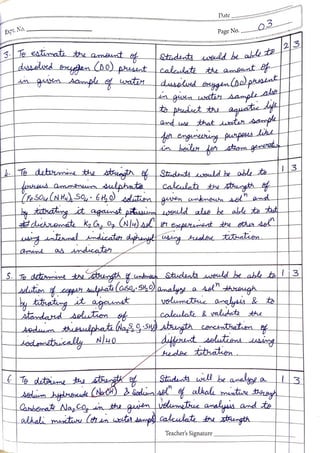 Date
Expt. No.
Page No. 03
3. To estimate the amount of
dissolved oxygen (DO) present
in given sample of water
Students would be able to
calculate the amount of
dissolved oxygen (DO) present
in given water sample also
to predict the aquatic life
and use that water sample
for engineering purposes like
in boiler for steam generator
2 3
4. To determine the strength of
ferrous ammonium sulphate
(FeSO4 (NH4)2 SO4 . 6H2O) solution
by titrating it against potassium
dichromate K2Cr2O7 (N/40) sol^n
using internal indicator diphenyl
amine as indicator
Students would be able to
calculate the strength of
given unknown sol^n and
would also be able to test
or experiment the other sol^n
using redox titration.
1 3
5. To determine the strength of unknown
solution of copper sulphate (CuSO4.5H2O)
by titrating it against
standard solution of
sodium thiosulphate (Na2S2O3.5H2O)
iodometrically N/40
Students would be able to
analyse a sol^n through
volumetric analysis & to
calculate & validate the
strength concentration of
different solutions using
redox titration.
1 3
6. To detrime the strength of
sodium hydroxide (NaOH) & sodium
Carbonate Na2CO3 in the given
alkali mixture (or in water sample)
Students will be analyse a
sol^n of alkali mixture through
volumetric analysis and to
calculate the strength
1 3
Teacher's Signature